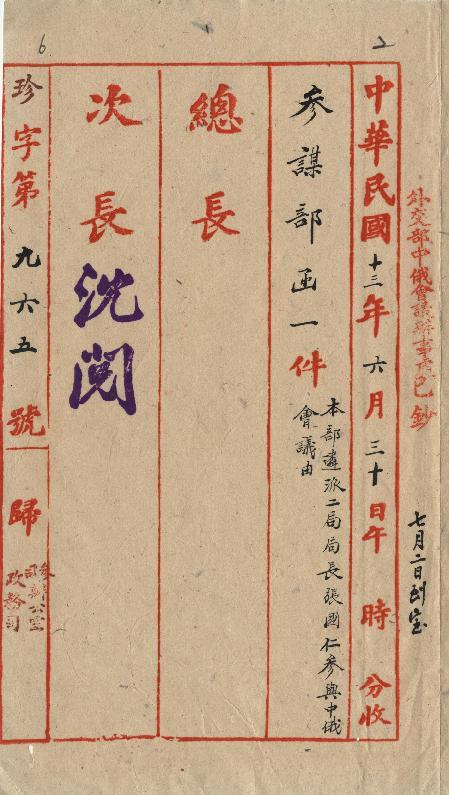 2
6
外交部中俄會議辦事處已鈔
七月二日到室
中華民國十三年六月三十日午時分收
參謀部函一件
本部遴派二局局長張國仁參與中俄
會議由
總長
次長
沈閱
珍字第九六五號
歸
參司辦公室
政務司